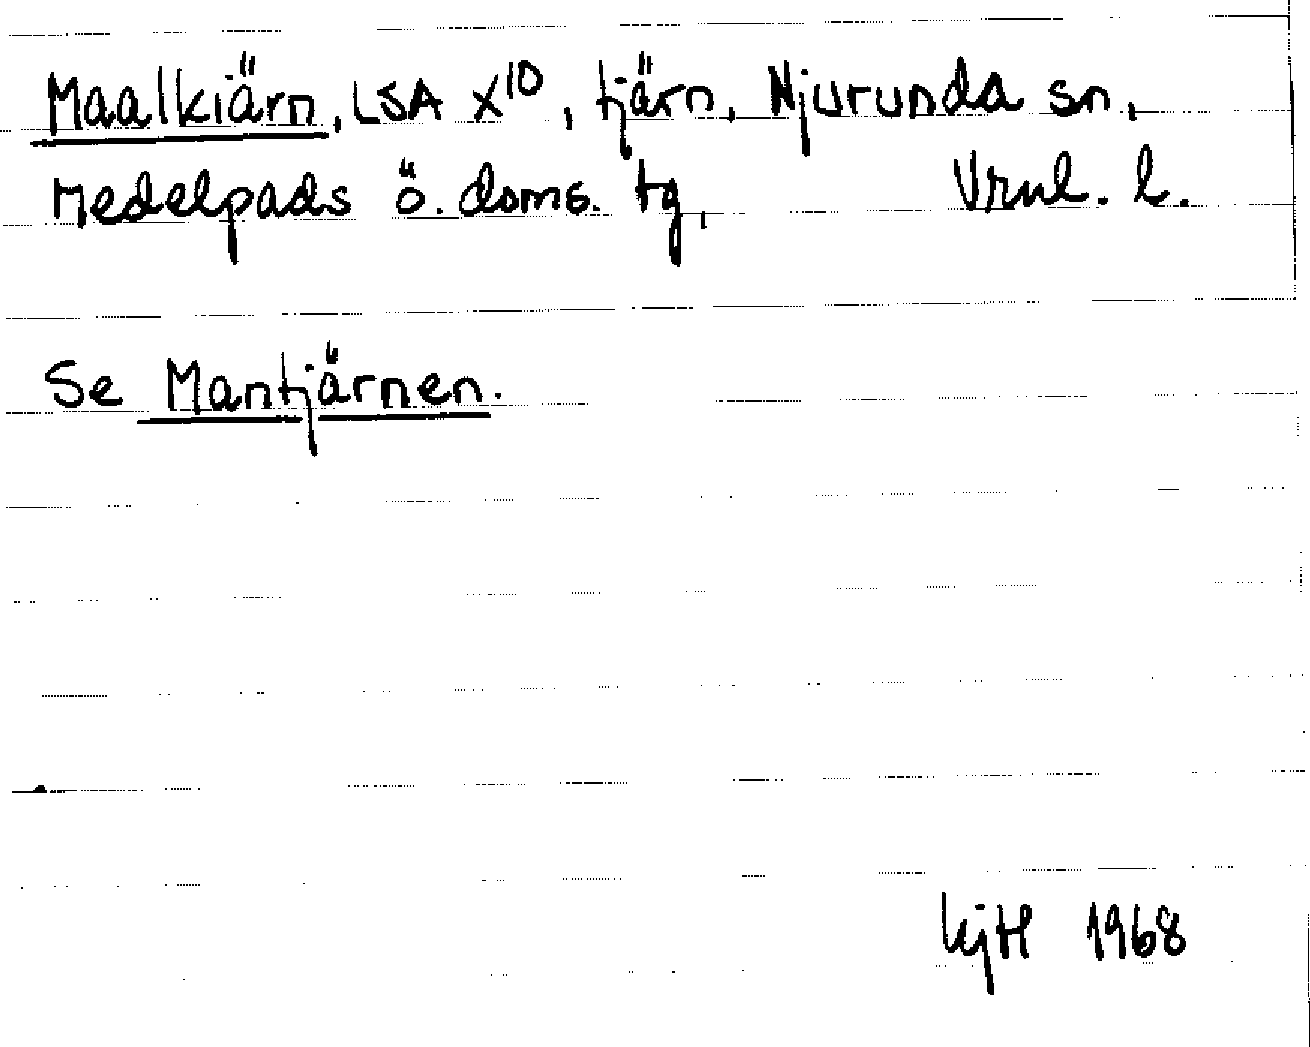 Maalkiärn, LSA X¹⁰, tjärn, Njurunda sn,
Medelpads ö. doms. tg, Vrnl. l.
Se Mantjärnen.
KjH 1968